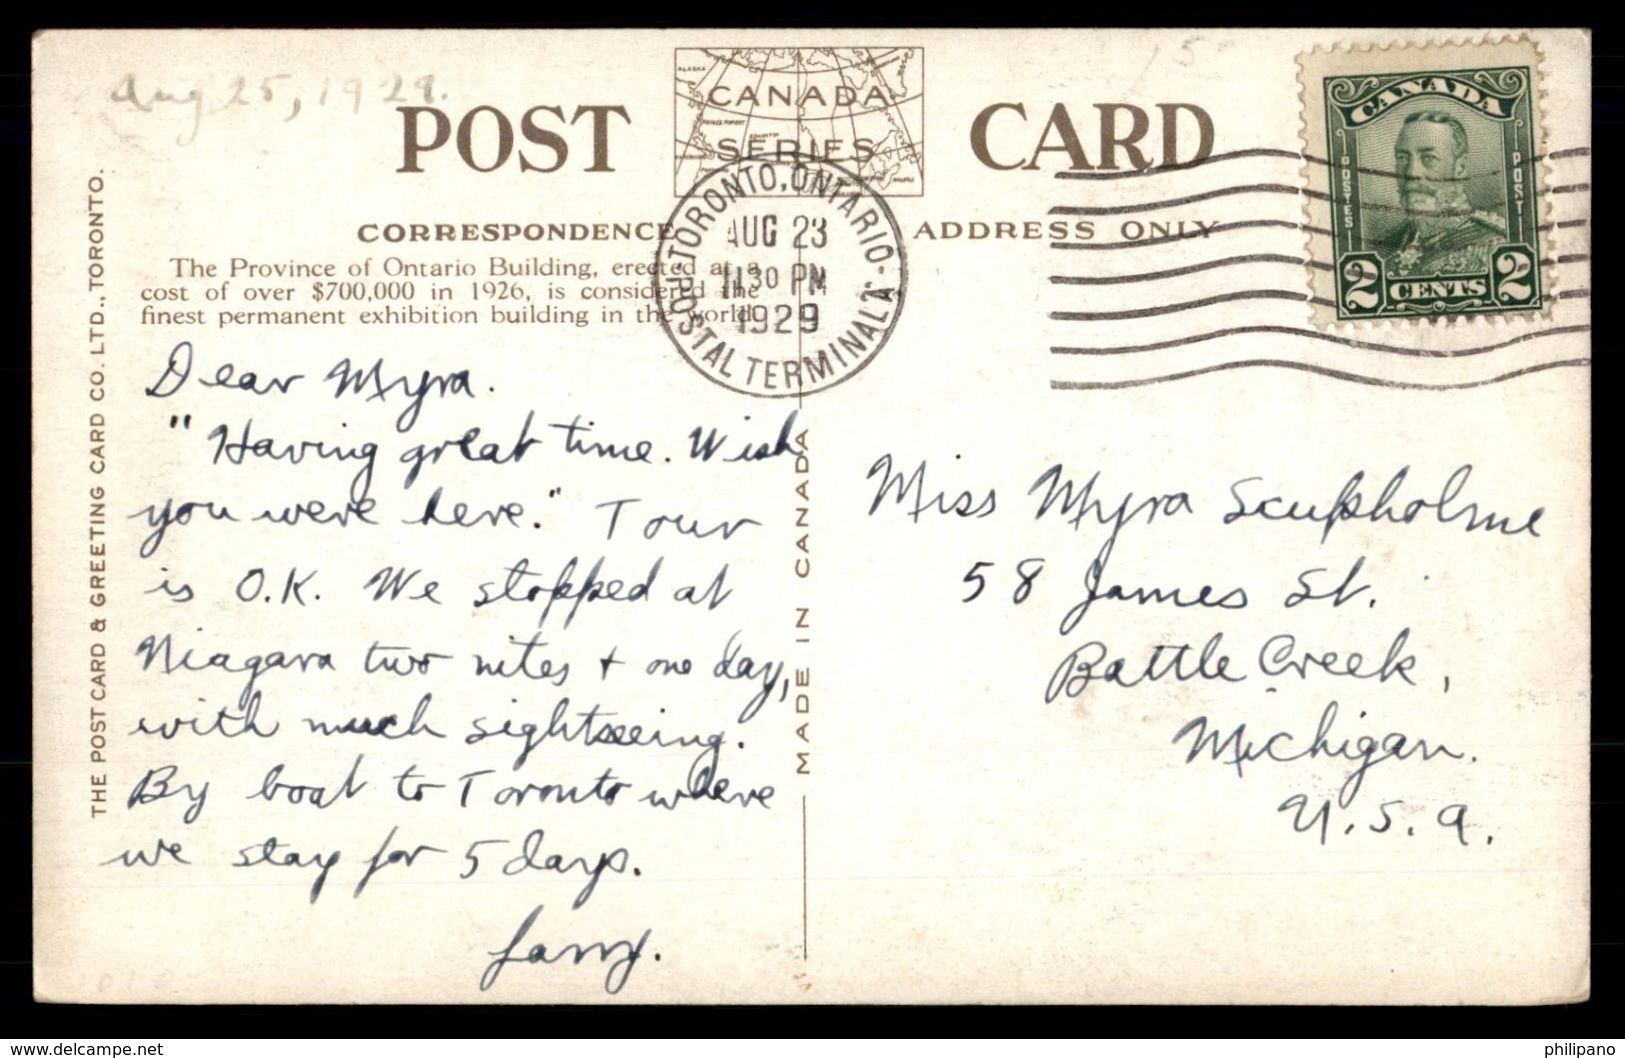 Aug 25, 1929.
POST CARD
CANADA
SERIES
ALASKA
CORRESPONDENCE
ADDRESS ONLY
The Province of Ontario Building, erected at a
cost of over $700,000 in 1926, is considered the
finest permanent exhibition building in the world.
TORONTO, ONTARIO
AUG 23
11 30 PM
1929
POSTAL TERMINAL A
CANADA
POSTES
POST
2 CENTS 2
THE POST CARD & GREETING CARD CO. LTD., TORONTO.
MADE IN CANADA
Dear Myra.
"Having great time. Wish
you were here." Tour
is O.K. We stopped at
Niagara two nites + one day,
with much sightseeing.
By boat to Toronto where
we stay for 5 days.
Larry.
Miss Myra Scupholme
58 James St.
Battle Creek,
Michigan.
U.S.A.
www.delcampe.net
philipano